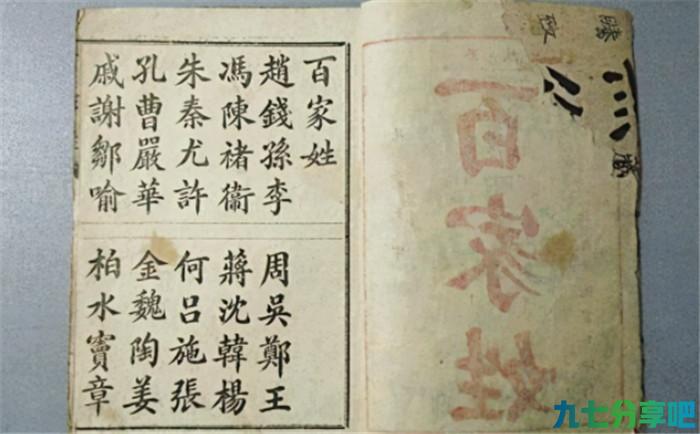 百家姓
百家姓
趙錢孫李 周吳鄭王
馮陳褚衛 蔣沈韓楊
朱秦尤許 何呂施張
孔曹嚴華 金魏陶姜
戚謝鄒喻 柏水竇章
九七分享吧